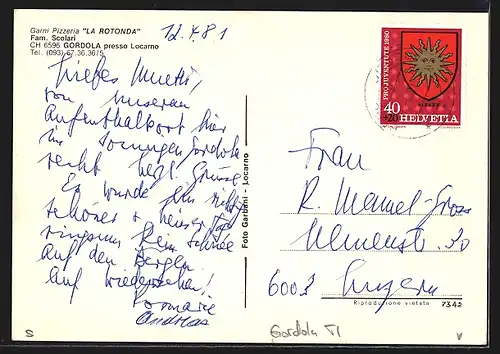 Garni Pizzeria "LA ROTONDA"
Fam. Scolari
CH 6596 GORDOLA presso Locarno
Tel. (093) 67.36.36/5
12.4.81
Liebes Mutti,
von unserem
Aufenthaltsort hier
im sonnigen Gordola
recht herzl. Grüsse
Es wurde ein richtig
schöner + heisser Tag
ringsum kein Schnee
auf den Bergen.
Auf Wiedersehen!
Rosmarie
Andreas
Foto Garbani - Locarno
PRO JUVENTUTE 1980
40
+20
HELVETIA
Frau
R. Memmel-Gross
Ulmenstr.
6003 Luzern
Riproduzione vietata 7342
Gordola TI